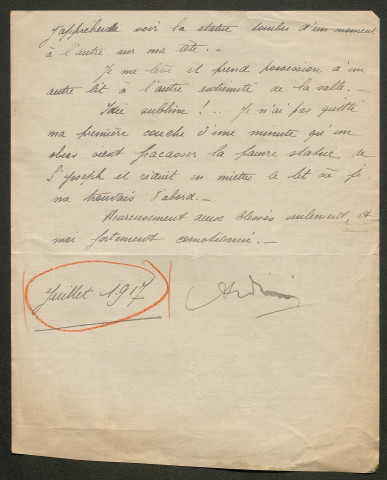 J'appréhende voir la statue tomber d'un moment
à l'autre sur ma tête. _
Je me lève et prend possession d'un
autre lit à l'autre extrémité de la salle. _
Idée sublime !... Je n'ai pas quitté
ma première couche d'une minute qu'un
obus vient fracasser la pauvre statue de
St Joseph et réduit en miettre le lit où je
me trouvais d'abord. _
Heureusement deux blessés seulement, et
moi fortement comotionné. _
Juillet 1917